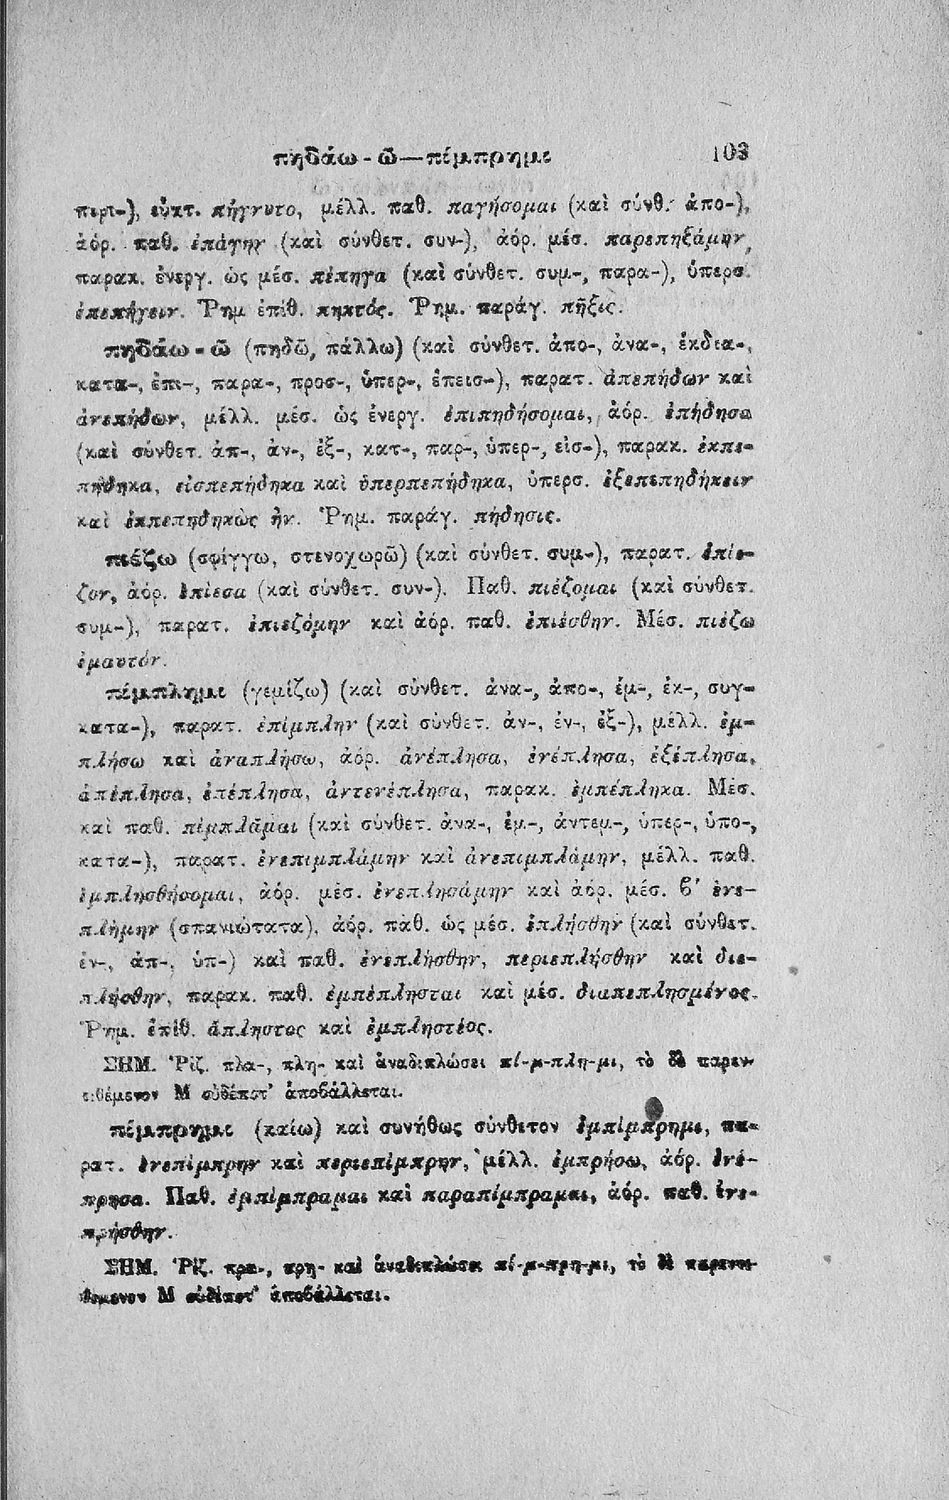 πηδάω-ῶ—πίμπρημι 103
περι-), εὐκτ. πήγνυτο, μέλλ. παθ. παγήσομαι (καὶ σύνθ. ἀπο-),
ἀόρ. παθ. ἐπάγην (καὶ σύνθετ. συν-), ἀόρ. μέσ. παρεπηξάμην,
παρακ. ἐνεργ. ὡς μέσ. πέπηγα (καὶ σύνθετ. συμ-, παρα-), ὑπερσ.
ἐπεπήγειν. Ῥημ ἐπίθ. πηκτός. Ῥημ. παράγ. πῆξις.
πηδάω-ῶ (πηδῶ, πάλλω) (καὶ σύνθετ. ἀπο-, ἀνα-, ἐκδια-,
κατα-, ἐπι-, παρα-, προσ-, ὑπερ-, ἐπεισ-), παρατ. ἀπεπήδων καὶ
ἀνεπήδων, μέλλ. μέσ. ὡς ἐνεργ. ἐπιπηδήσομαι, ἀόρ. ἐπήδησα
(καὶ σύνθετ. ἀπ-, ἀν-, ἐξ-, κατ-, παρ-, ὑπερ-, εἰσ-), παρακ. ἐκπε-
πήδηκα, εἰσπεπήδηκα καὶ ὑπερπεπήδηκα, ὑπερσ. ἐξεπεπηδήκειν
καὶ ἐκπεπηδηκὼς ἦν. Ῥημ. παράγ. πήδησις.
πιέζω (σφίγγω, στενοχωρῶ) (καὶ σύνθετ. συμ-), παρατ. ἐπίε-
ζον, ἀόρ. ἐπίεσα (καὶ σύνθετ. συν-). Παθ. πιέζομαι (καὶ σύνθετ.
συμ-), παρατ. ἐπιεζόμην καὶ ἀόρ. παθ. ἐπιέσθην. Μέσ. πιέζω
ἐμαυτόν.
πίμπλημι (γεμίζω) (καὶ σύνθετ. ἀνα-, ἀπο-, ἐμ-, ἐκ-, συγ-
κατα-), παρατ. ἐπίμπλην (καὶ σύνθετ. ἀν-, ἐν-, ἐξ-), μέλλ. ἐμ-
πλήσω καὶ ἀναπλήσω, ἀόρ. ἀνέπλησα, ἐνέπλησα, ἐξέπλησα,
ἀπέπλησα, ἐπέπλησα, ἀντενέπλησα, παρακ. ἐμπέπληκα. Μέσ.
καὶ παθ. πίμπλᾰμαι (καὶ σύνθετ. ἀνα-, ἐμ-, ἀντεμ-, ὑπερ-, ὑπο-,
κατα-), παρατ. ἐνεπιμπλάμην καὶ ἀνεπιμπλάμην, μέλλ. παθ.
ἐμπλησθήσομαι, ἀόρ. μέσ. ἐνεπλησάμην καὶ ἀόρ. μέσ. ϐ′ ἐνε-
πλήμην (σπανιώτατα), ἀόρ. παθ. ὡς μέσ. ἐπλήσθην (καὶ σύνθετ.
ἐν-, ἀπ-, ὑπ-) καὶ παθ. ἐνεπλήσθην, περιεπλήσθην καὶ διε-
πλήσθην, παρακ. παθ. ἐμπέπλησται καὶ μέσ. διαπεπλησμένος.
Ῥημ. ἐπίθ. ἄπληστος καὶ ἐμπληστέος.
ΣΗΜ. Ῥίζ. πλα-, πλη- καὶ ἀναδιπλώσει πί-μ-πλη-μι, τὸ δὲ παρεν-
τιθέμενον Μ οὐδέποτ' ἀποϐάλλεται.
πίμπρημι (καίω) καὶ συνήθως σύνθετον ἐμπίμπρημι, πα-
ρατ. ἐνεπίμπρην καὶ περιεπίμπρην, μέλλ. ἐμπρήσω, ἀόρ. ἐνέ-
πρησα. Παθ. ἐμπίμπραμαι καὶ παραπίμπραμαι, ἀόρ. παθ. ἐνε-
πρήσθην.
ΣΗΜ. Ῥίζ. πρα-, πρη- καὶ ἀναδιπλώσει πί-μ-πρη-μι, τὸ δὲ παρεντι-
θέμενον Μ οὐδέποτ' ἀποϐάλλεται.